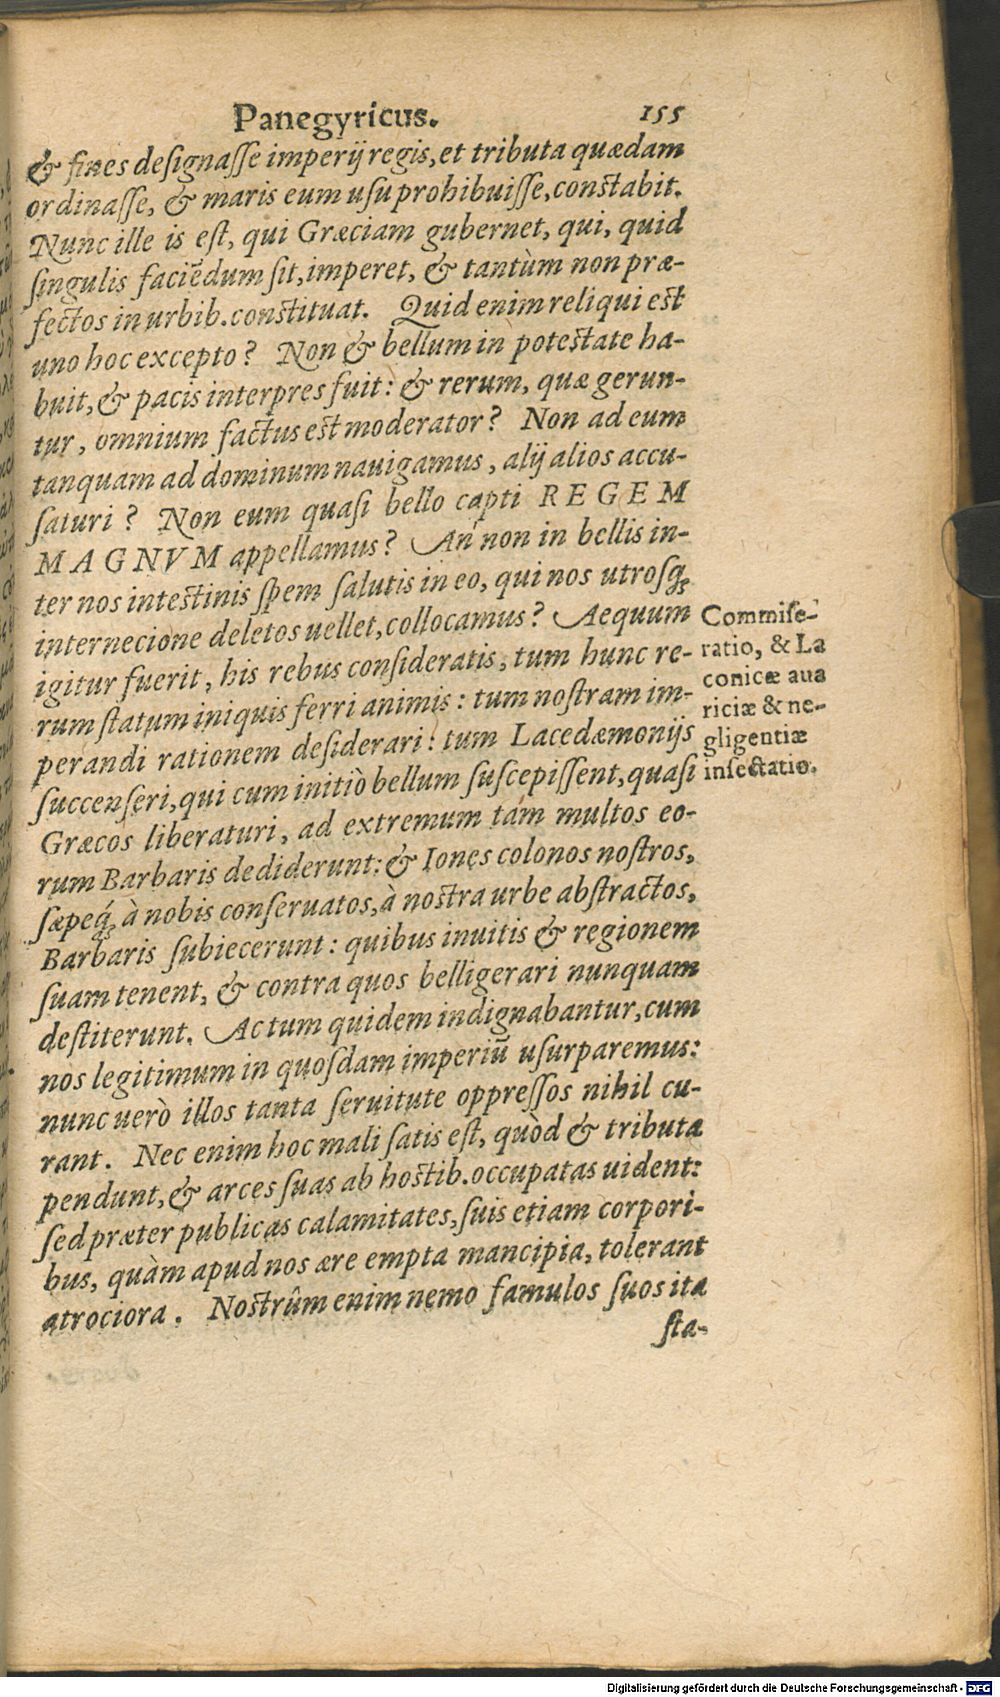 Panegyricus. 155
& fines deſignaſſe imperij regis, et tributa quædam
ordinaſſe, & maris eum uſu prohibuiſſe, conſtabit.
Nunc ille is eſt, qui Græciam gubernet, qui, quid
ſingulis faciēdum ſit, imperet, & tantùm non præ-
fectos in urbib. conſtituat. Quid enim reliqui eſt
uno hoc excepto? Non & bellum in poteſtate ha-
buit, & pacis interpres fuit: & rerum, quæ gerun-
tur, omnium factus eſt moderator? Non ad eum
tanquam ad dominum nauigamus, alij alios accu-
ſaturi? Non eum quaſi bello capti REGEM
MAGNVM appellamus? An non in bellis in-
ter nos inteſtinis ſpem ſalutis in eo, qui nos utroſq;
internecione deletos uellet, collocamus? Aequum
igitur fuerit, his rebus conſideratis, tum hunc re-
rum ſtatum iniquis ferri animis: tum noſtram im-
perandi rationem deſiderari: tum Lacedæmonijs
ſuccenſeri, qui cum initiò bellum ſuscepiſſent, quaſi
Græcos liberaturi, ad extremum tám multos eo-
rum Barbaris dediderunt: & Iones colonos noſtros,
ſæpeq́; à nobis conſeruatos, à noſtra urbe abſtractos,
Barbaris ſubiecerunt: quibus inuitis & regionem
ſuam tenent, & contra quos belligerari nunquam
deſtiterunt. Ac tum quidem indignabantur, cum
nos legitimum in quoſdam imperiū uſurparemus:
nunc uerò illos tanta ſeruitute oppreſſos nihil cu-
rant. Nec enim hoc mali ſatis eſt, quòd & tributa
pendunt, & arces ſuas ab hoſtib. occupatas uident:
ſed præter publicas calamitates, ſuis etiam corpori-
bus, quàm apud nos ære empta mancipia, tolerant
atrociora. Noſtrûm enim nemo famulos ſuos ita
ſta-
Commiſe-
ratio, & La
conicæ aua
riciæ & ne-
gligentiæ
inſectatio.
Digitalisierung gefördert durch die Deutsche Forschungsgemeinschaft - DFG